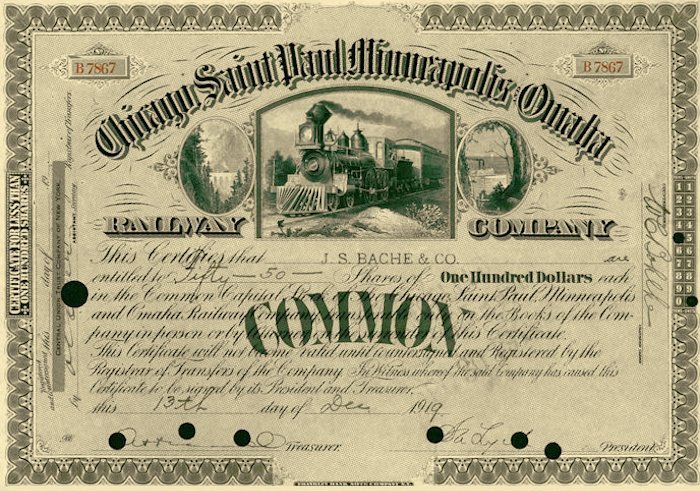 B 7867
B 7867
Chicago Saint Paul Minneapolis & Omaha
RAILWAY COMPANY
This Certifies that J. S. BACHE & CO. are
entitled to Fifty - 50 - Shares of One Hundred Dollars each
in the Common Capital Stock of the Chicago, Saint Paul, Minneapolis
and Omaha Railway Company transferable only on the Books of the Com-
pany in person or by attorney on surrender of this Certificate.
This Certificate will not become valid until countersigned and Registered by the
Registrar of Transfers of the Company. In Witness whereof the said Company has caused this
Certificate to be signed by its President and Treasurer.
this 13th day of Dec 1919
Treasurer.
President.
COMMON
CERTIFICATE FOR LESS THAN
ONE HUNDRED SHARES
CENTRAL UNION TRUST COMPANY OF NEW YORK
Registrar of Transfers
FRANKLIN BANK NOTE COMPANY N.Y.